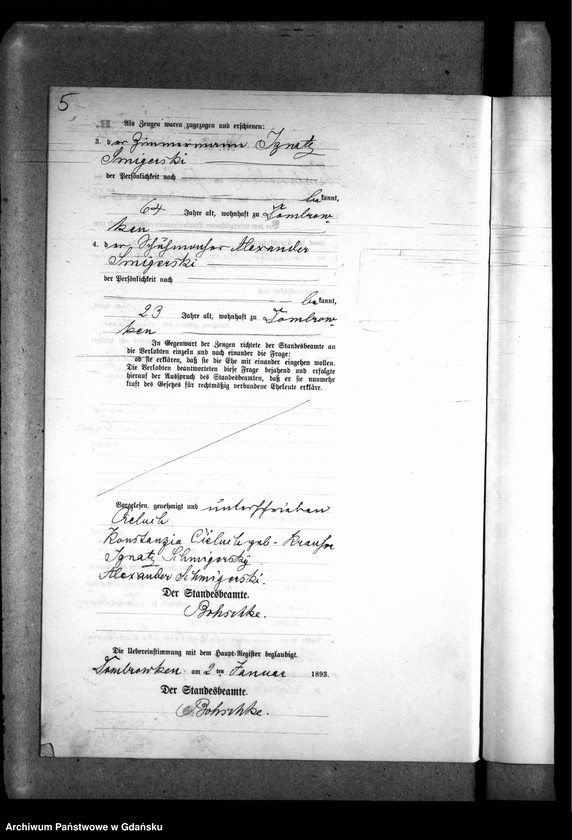 5
Als Zeugen waren zugezogen und erschienen:
3. der Zimmermann Ignatz
Smigerski
der Persönlichkeit nach
bekannt,
64 Jahre alt, wohnhaft zu Dombrow-
ken
4. der Schuhmacher Alexander
Smigerski
der Persönlichkeit nach
bekannt,
23 Jahre alt, wohnhaft zu Dombrow-
ken
In Gegenwart der Zeugen richtete der Standesbeamte an
die Verlobten einzeln und nach einander die Frage:
ob sie erklären, daß sie die Ehe mit einander eingehen wollen.
Die Verlobten beantworteten diese Frage bejahend und erfolgte
hierauf der Ausspruch des Standesbeamten, daß er sie nunmehr
kraft des Gesetzes für rechtmäßig verbundene Eheleute erkläre.
Vorgelesen, genehmigt und unterschrieben
Cieluik
Konstanzia Cieluik geb. Krause
Ignatz Schmigerski
Alexander Schmigerski.
Der Standesbeamte.
Bohschke.
Die Uebereinstimmung mit dem Haupt-Register beglaubigt.
Dombrowken am 2ten Januar 1893.
Der Standesbeamte.
Bohschke.
Archiwum Państwowe w Gdańsku